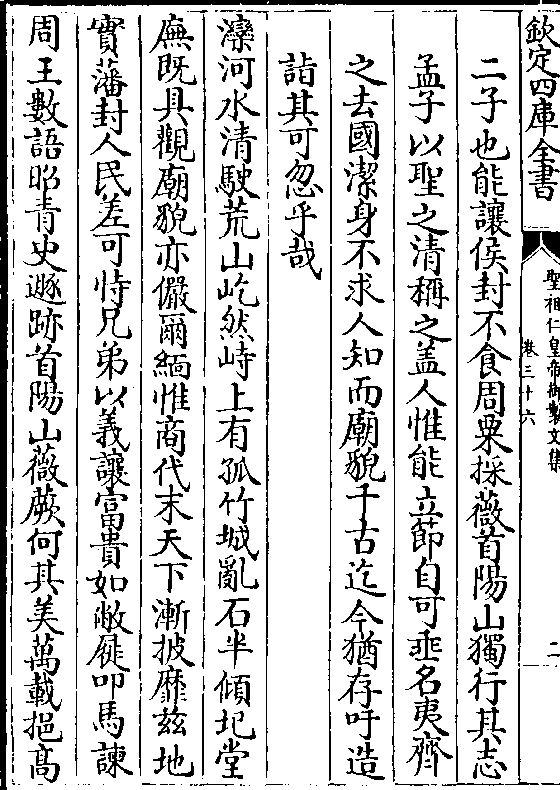 欽定四庫全書
聖祖仁皇帝御製文集
卷三十六
二
二子也能讓侯封不食周粟採薇首陽山獨行其志
孟子以聖之清稱之蓋人惟能立節自可垂名夷齊
之去國潔身不求人知而廟貌千古迄今猶存吁造
詣其可忽乎哉
灤河水清駛荒山屹然峙上有孤竹城亂石半傾圮堂
廡既具觀廟貌亦儼爾緬惟商代末天下漸披靡兹地
實藩封人民差可恃兄弟以義讓富貴如敝屣叩馬諫
周王數語昭青史遯跡首陽山薇蕨何其美萬載挹高